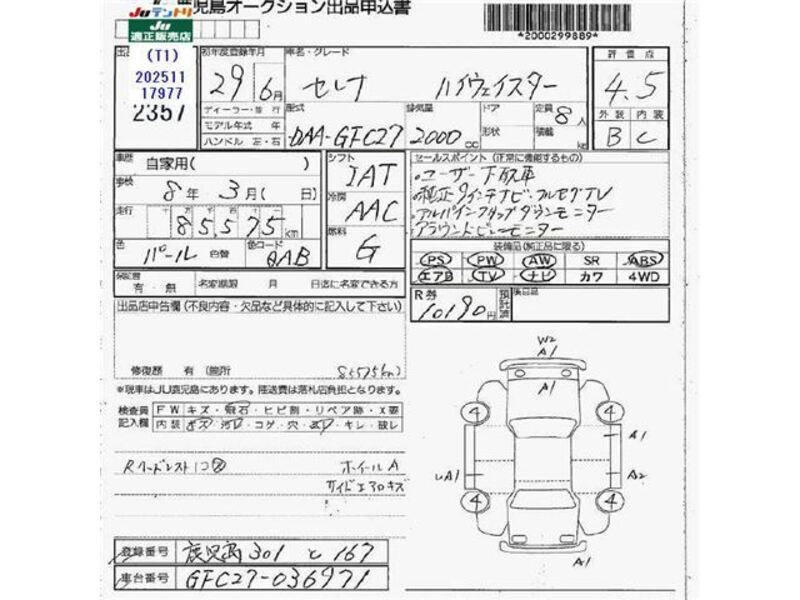 鹿児島オークション出品申込書
JU テントリ
JU
適正販売店
*2000299889*
(T1)
202511
17977
2357
初年度登録年月
29 6月
車名・グレード
セレナ ハイウェイスター
評価点
4.5
ディーラー・並行
モデル年式 年
ハンドル 左・右
型式
DAA-GFC27
排気量
2000 cc
ドア
形状
定員 8人
積載 kg
外装 内装
B C
車歴 自家用( )
車検 8年 3月( 日)
走行 85,575 km
色 パール 色替 色コード QAB
シフト
IAT
冷房
AAC
燃料
G
セールスポイント(正常に機能するもの)
・ユーザー下取車
・純正9インチナビ・フルセグTV
・アルパインフリップダウンモニター
・アラウンドビューモニター
装備品(純正品に限る)
PS PW AW SR ABS
エアB TV ナビ カワ 4WD
保証書
有・無
名変期限 月 日迄に名変できる方
R券
10190円
預託済
出品店申告欄(不良内容・欠品など具体的に記入して下さい)
修復歴 有(箇所 85575km)
*現車はJU鹿児島にあります。陸送費は落札店負担となります。
検査員
記入欄
FW キズ・飛石・ヒビ割・リペア跡・X要
内装 キズ・汚レ・コゲ・穴・スレ・キレ・破レ
ホイールA
サイドエアロキズ
W2
A1
A1
4 4
A1
A1 A2
4 4
A1
登録番号 鹿児島 301 と 167
車台番号 GFC27-036971